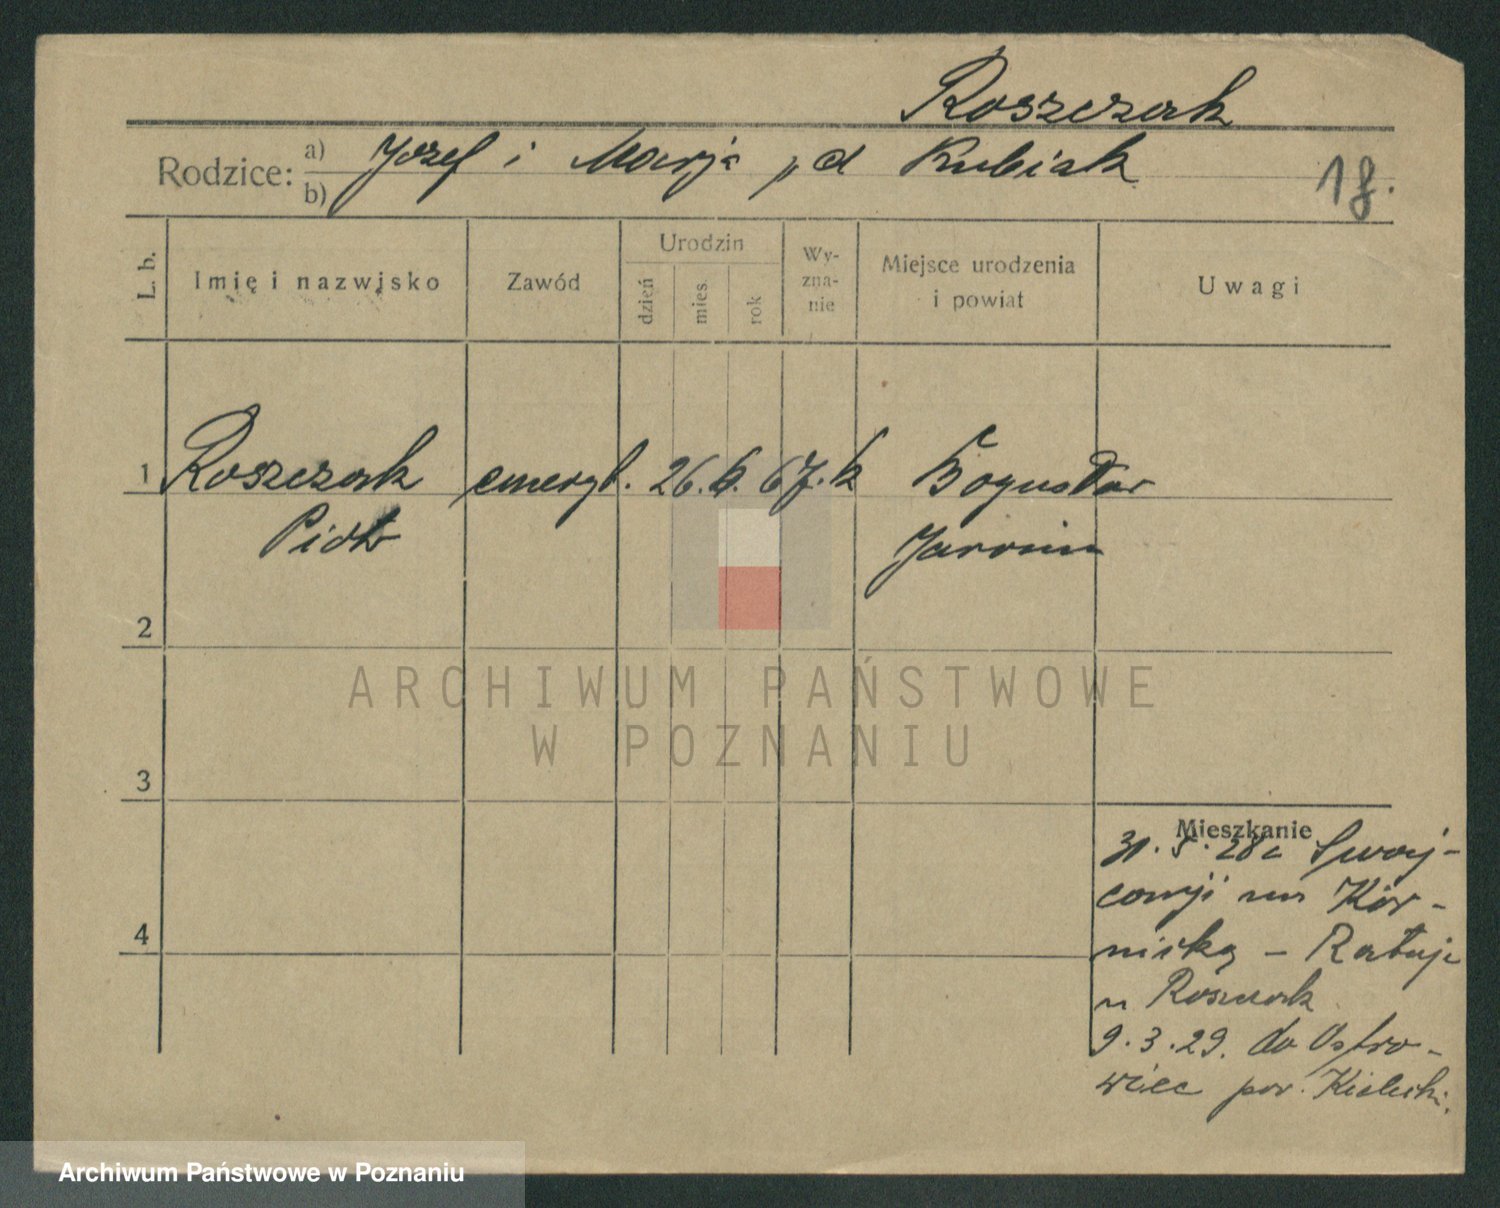 Roszczak
Rodzice: a) Józef i Marja p d Kubiak
b)
18.
L. b.
Imię i nazwisko
Zawód
Urodzin
dzień
mies.
rok
Wy-
zna-
nie
Miejsce urodzenia
i powiat
Uwagi
1 Roszczak emeryt. 26. 6. 67. k Bogusław
Piotr Jarocin
2
3
4
Mieszkanie
31. 5. 28 z Swaj-
na Kór-
nicką – Rataje
u Roszczak
9. 3. 29. do Ostro-
wiec pow. Kielecki.
ARCHIWUM PAŃSTWOWE
W POZNANIU
Archiwum Państwowe w Poznaniu